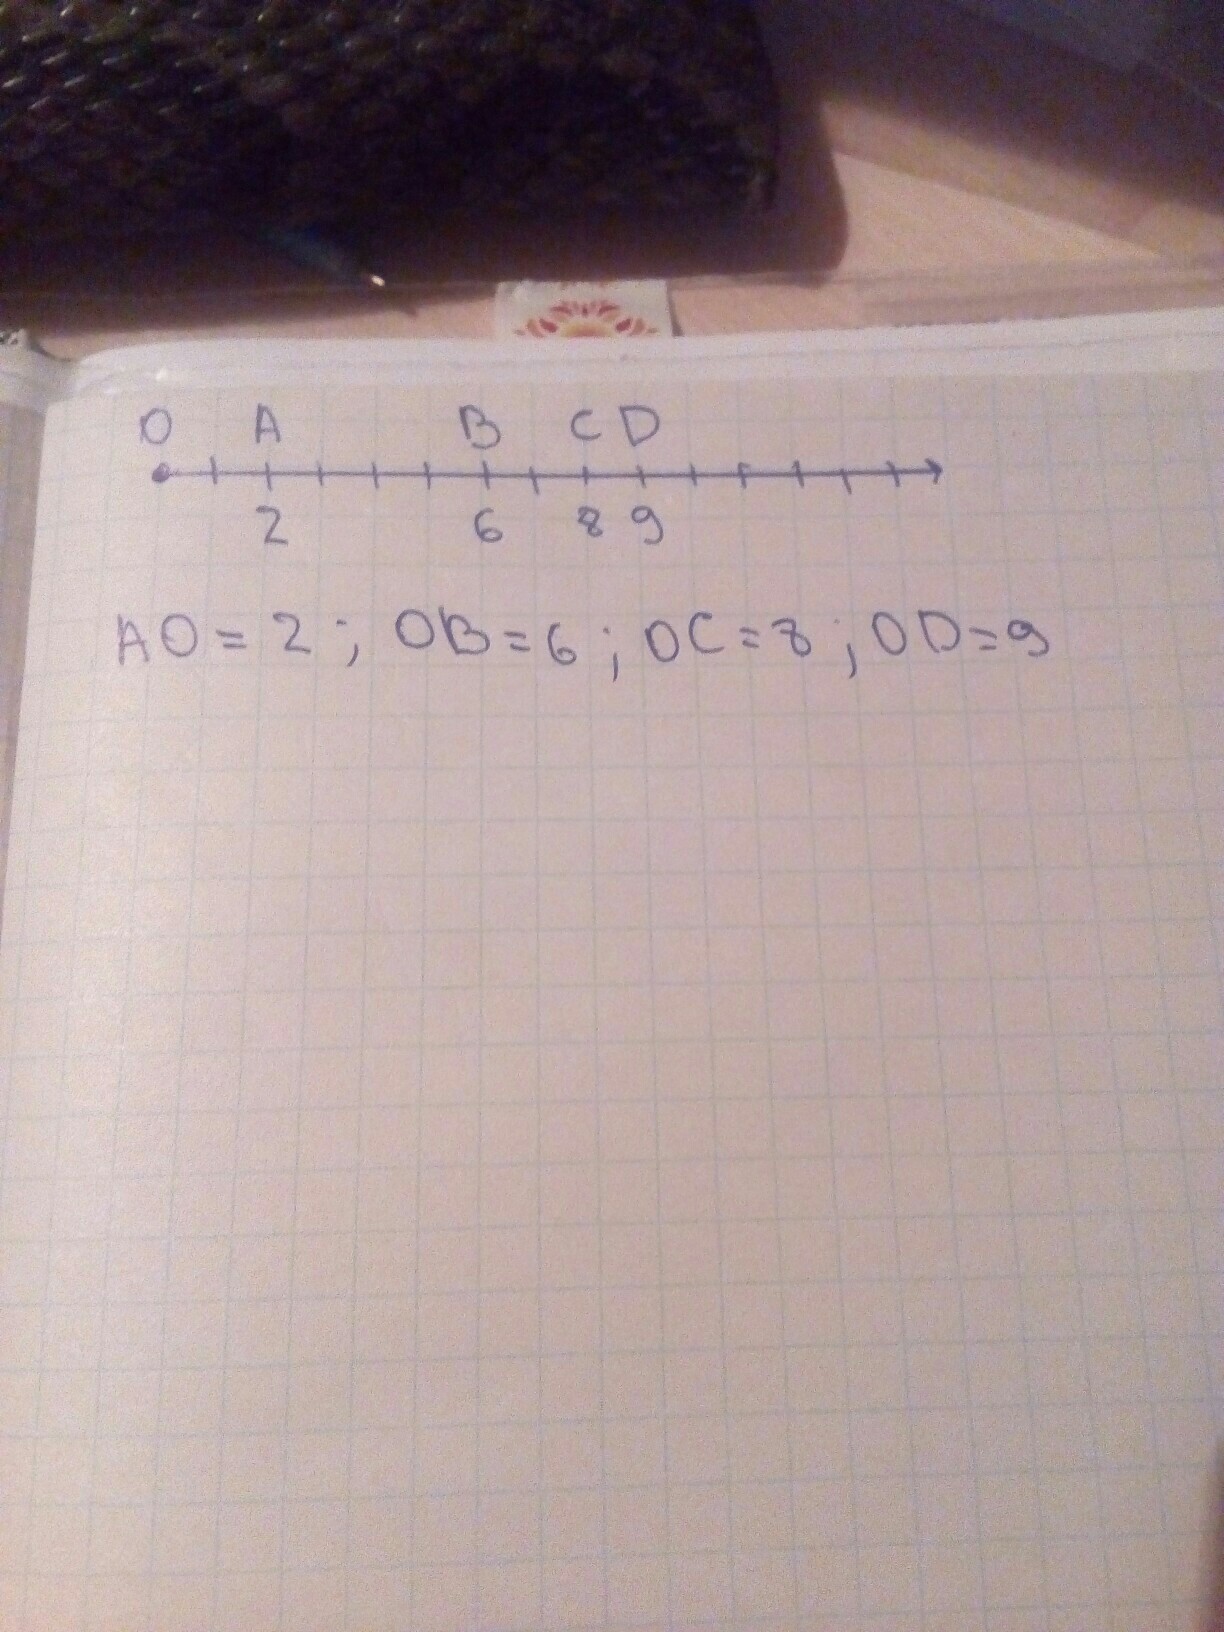 O A B C D
2 6 8 9
AO = 2 ; OB = 6 ; OC = 8 ; OD = 9